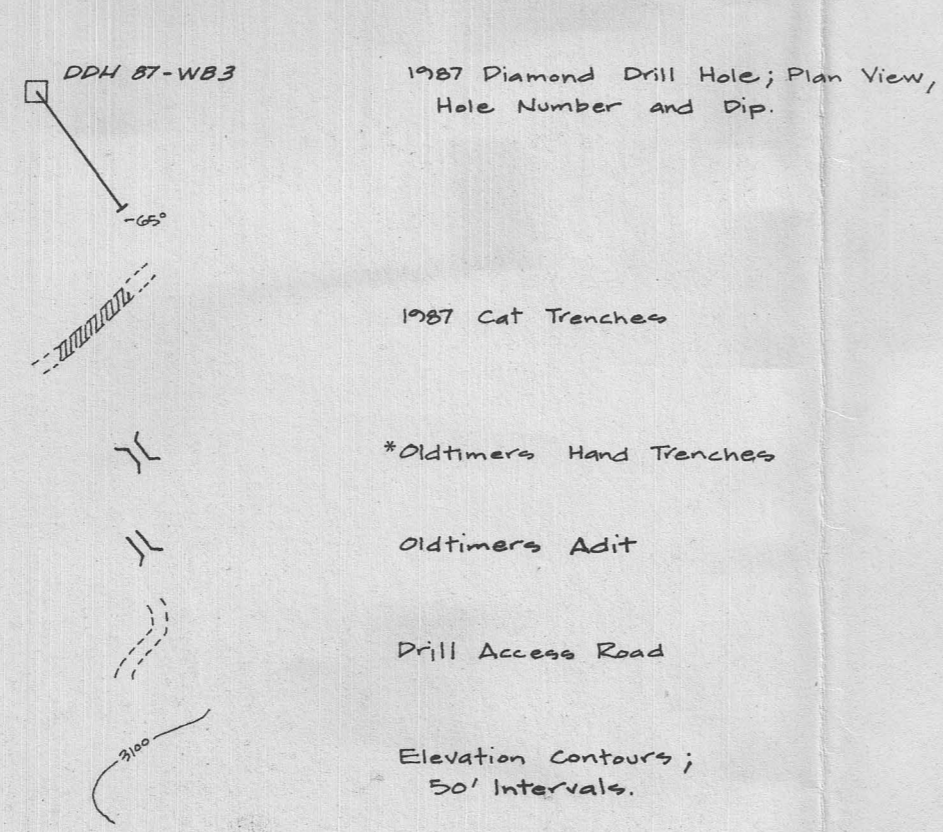 DDH 87-WB3
1987 Diamond Drill Hole; Plan View,
Hole Number and Dip.
-65°
1987 Cat Trenches
*Oldtimers Hand Trenches
Oldtimers Adit
Drill Access Road
3100
Elevation Contours;
50' Intervals.